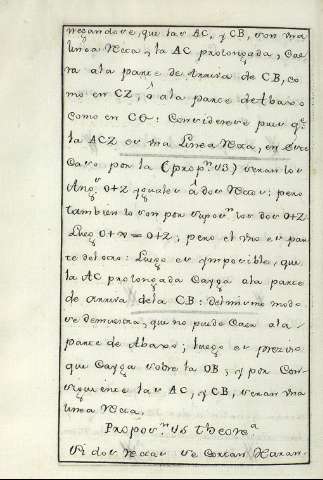 negandose, que las AC, y CB, son una
linea recta, y la AC prolongada, cae
ra a la parte de Arriva de CB, co
mo en CZ, ò a la parte de Abaxo
como en CO: Considerese pues q.e
la ACZ es una Linea Recta, en este
Caso por la (prop.n 13) seran los
Ang.s O+Z yguales â dos rectos; pero
tambien lo son por supos.n los dos O+Z
Lueg O+x=O+Z; pero el uno es par
te del otro: Luego es ymposible, que
la AC prolongada Cayga a la parte
de Arriva de la CB: del mismo modo
se demuestra, que no puede Caer a la
parte de Abaxo; luego es preziso
que Cayga sobre la CB; y por Con
siguiente las AC, y CB, seran una
linea recta.
Propos.n 15 theore.a
Si dos rectas se cortan Haran